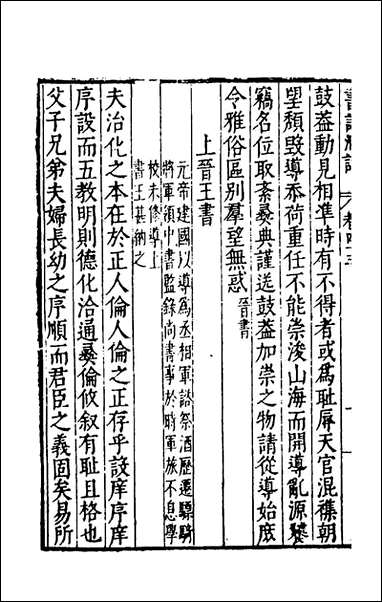 鼓葢動見相準時有不得者或爲耻辱天官混襍朝
望頹毀導忝荷重任不能崇浚山海而開導亂源饕
竊名位取紊彛典謹送鼓葢加崇之物請從導始庶
令雅俗區别羣望無惑晉書
上晉王書
元帝建國以導爲丞相軍諮祭酒歷遷驃騎
將軍領中書監錄尚書事於時軍旅不息學
校未修導上
書王甚納之
夫治化之本在於正人倫人倫之正存乎設庠序庠
序設而五教明則德化洽通彛倫攸叙有耻且格也
父子兄弟夫婦長幼之序順而君臣之義固矣易所